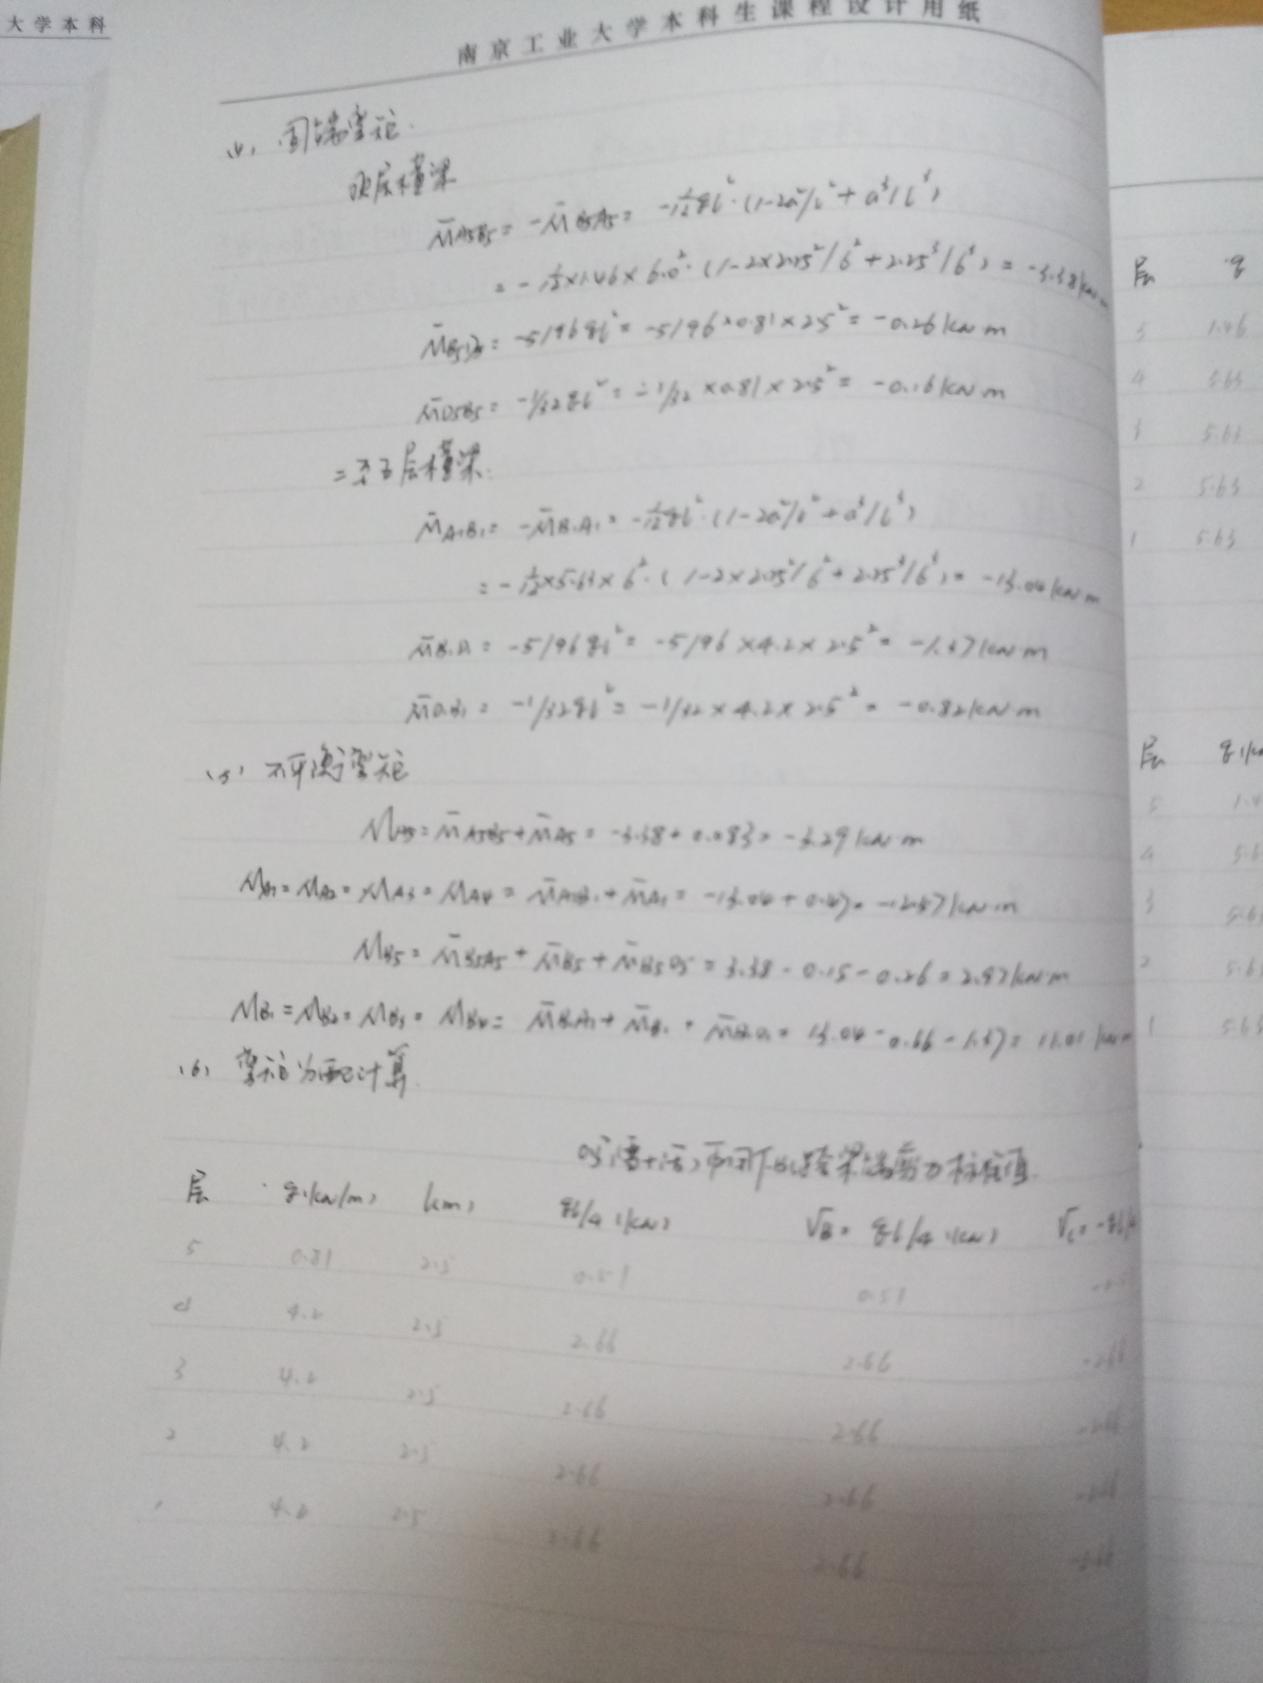 大学本科
南京工业大学本科生课程设计用纸
(4) 固端弯矩
顶层横梁
M̄A5B5 = -M̄B5A5 = -1/12 ql²·(1-2a²/l²+a³/l³)
= -1/12×1.46×6.0²·(1-2×2.25²/6²+2.25³/6³) = -3.38kN·m
M̄B5D5 = -5/96ql² = -5/96×0.81×2.5² = -0.26kN·m
M̄D5B5 = -1/32ql² = -1/32×0.81×2.5² = -0.16kN·m
二至五层横梁:
M̄A1B1 = -M̄B1A1 = -1/12ql²·(1-2a²/l²+a³/l³)
= -1/12×5.63×6²·(1-2×2.25²/6²+2.25³/6³) = -13.04kN·m
= -5/96ql² = -5/96×4.2×2.5² = -1.37kN·m
M̄D1B1 = -1/32ql² = -1/32×4.2×2.5² = -0.82kN·m
(5) 不平衡弯矩
MA5 = M̄A5B5+M̄A5 = -3.38+0.083 = -3.29kN·m
MA1=MA2=MA3=MA4 = M̄A1B1+M̄A1 = -13.04+0.47= -12.57kN·m
MB5 = M̄B5A5+M̄B5+M̄B5D5 = 3.38-0.15-0.26 = 2.97kN·m
MB1=MB2=MB3=MB4 = M̄B1A1+M̄B1+M̄B1D1 = 13.04-0.66-1.37= 11.01kN·m
(6) 弯矩分配计算
跨梁端剪力标准值
层 q(kN/m) l(m) ql/4(kN) VB=ql/4(kN) VC=-ql/4
5 0.81 2.5 0.51 0.51
4 4.2 2.5 2.66 2.66 -2.66
3 4.2 2.5 2.66 2.66 -2.66
2 4.2 2.5 2.66 2.66 -2.66
1 4.2 2.5 2.66 2.66 -2.66
层 q
5 1.46
4 5.63
3 5.63
2 5.63
1 5.63
层 q(k
5 1.4
4 5.6
3 5.63
2 5.63
1 5.63